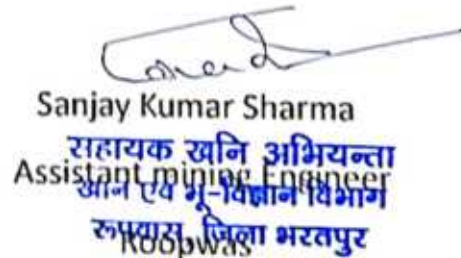 Sanjay Kumar Sharma
सहायक खनि अभियन्ता
Assistant mining Engineer
खान एवं भू-विज्ञान विभाग
रूपवास, जिला भरतपुर
Roopwas